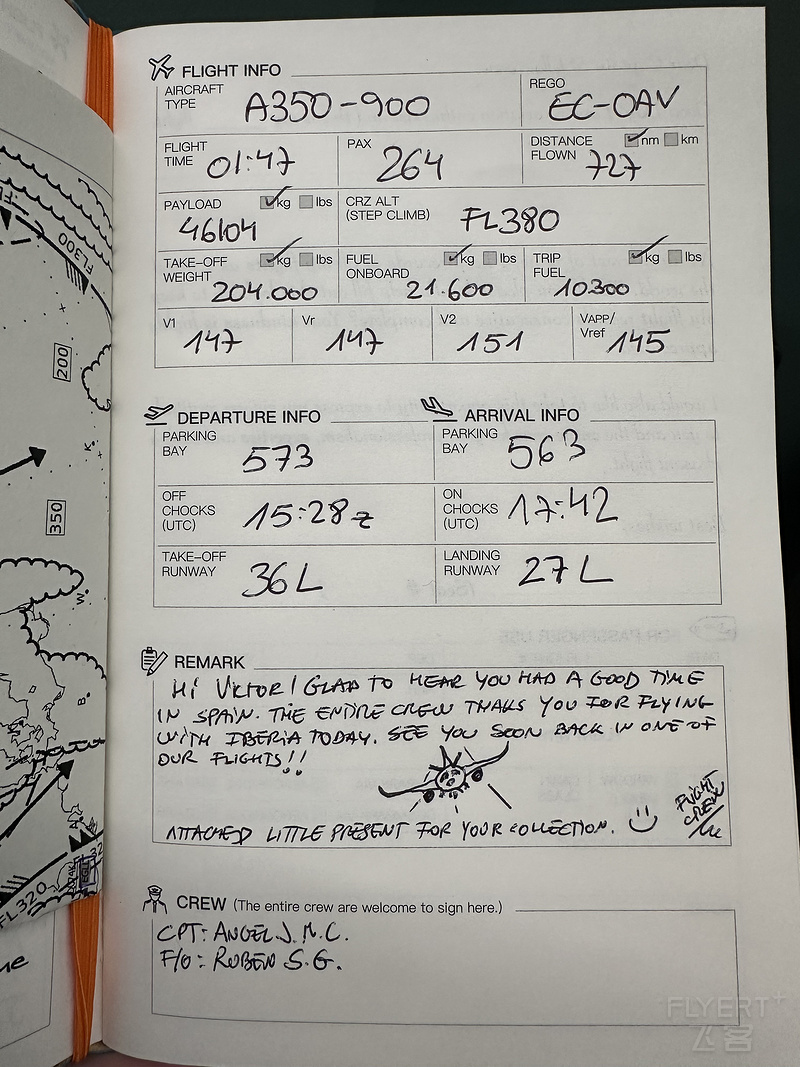 FLIGHT INFO
AIRCRAFT TYPE A350-900
REGO EC-OAV
FLIGHT TIME 01:47
PAX 264
DISTANCE FLOWN nm km 727
PAYLOAD kg lbs 46104
CRZ ALT (STEP CLIMB) FL380
TAKE-OFF WEIGHT kg lbs 204.000
FUEL ONBOARD kg lbs 21.600
TRIP FUEL kg lbs 10300
V1 147
Vr 147
V2 151
VAPP/Vref 145
DEPARTURE INFO
PARKING BAY 573
OFF CHOCKS (UTC) 15:28z
TAKE-OFF RUNWAY 36L
ARRIVAL INFO
PARKING BAY 563
ON CHOCKS (UTC) 17:42
LANDING RUNWAY 27L
REMARK
HI VICTOR! GLAD TO HEAR YOU HAD A GOOD TIME
IN SPAIN. THE ENTIRE CREW THAKS YOU FOR FLYING
WITH IBERIA TODAY. SEE YOU SOON BACK IN ONE OF
OUR FLIGHTS!!
ATTACHED LITTLE PRESENT FOR YOUR COLLECTION.
FLIGHT
CREW
CREW (The entire crew are welcome to sign here.)
CPT: ANGEL J.M.C.
F/O: RUBEN S.G.
FL300
200
350
FL320
me
FLYERT+
飞客